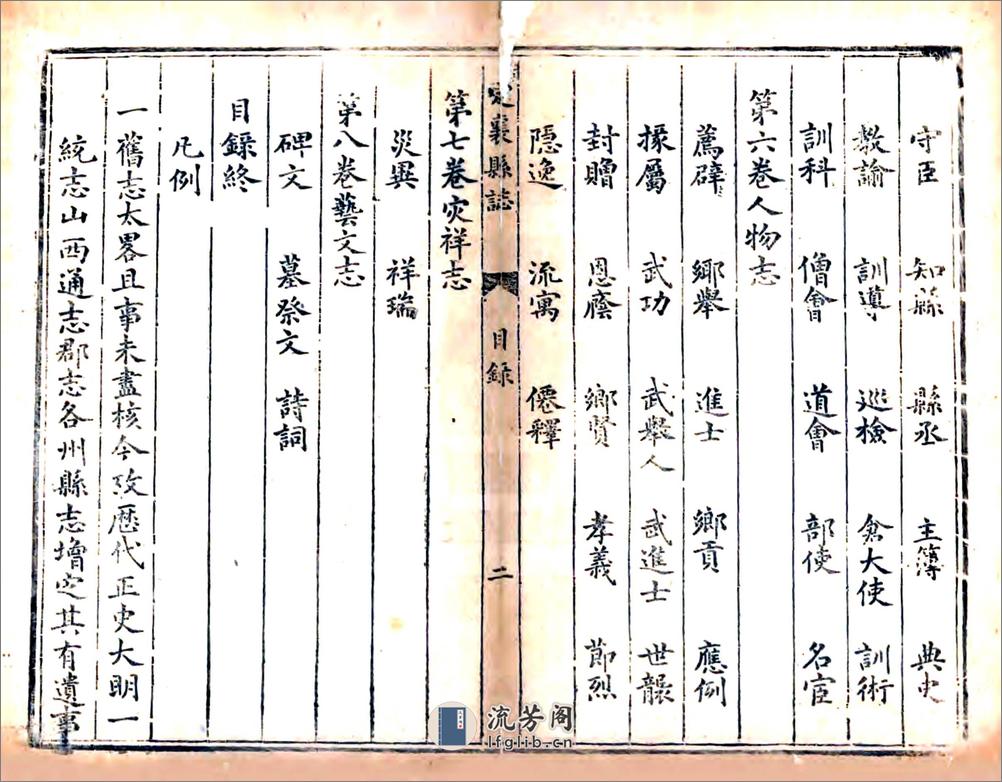 守臣 知縣 縣丞 主簿 典史
教諭 訓導 巡檢 倉大使 訓術
訓科 僧會 道會 部使 名宦
第六卷人物志
薦辟 鄉舉 進士 鄉貢 應例
掾屬 武功 武舉人 武進士 世襲
封贈 恩廕 鄉賢 孝義 節烈
隱逸 流寓 僊釋
定襄縣誌 目錄 二
第七卷灾祥志
災異 祥瑞
第八卷藝文志
碑文 墓祭文 詩詞
目錄終
凡例
一舊志太畧且事未盡核今攷歷代正史大明一
統志山西通志郡志各州縣志增定其有遺事
流芳阁
lfglib.cn